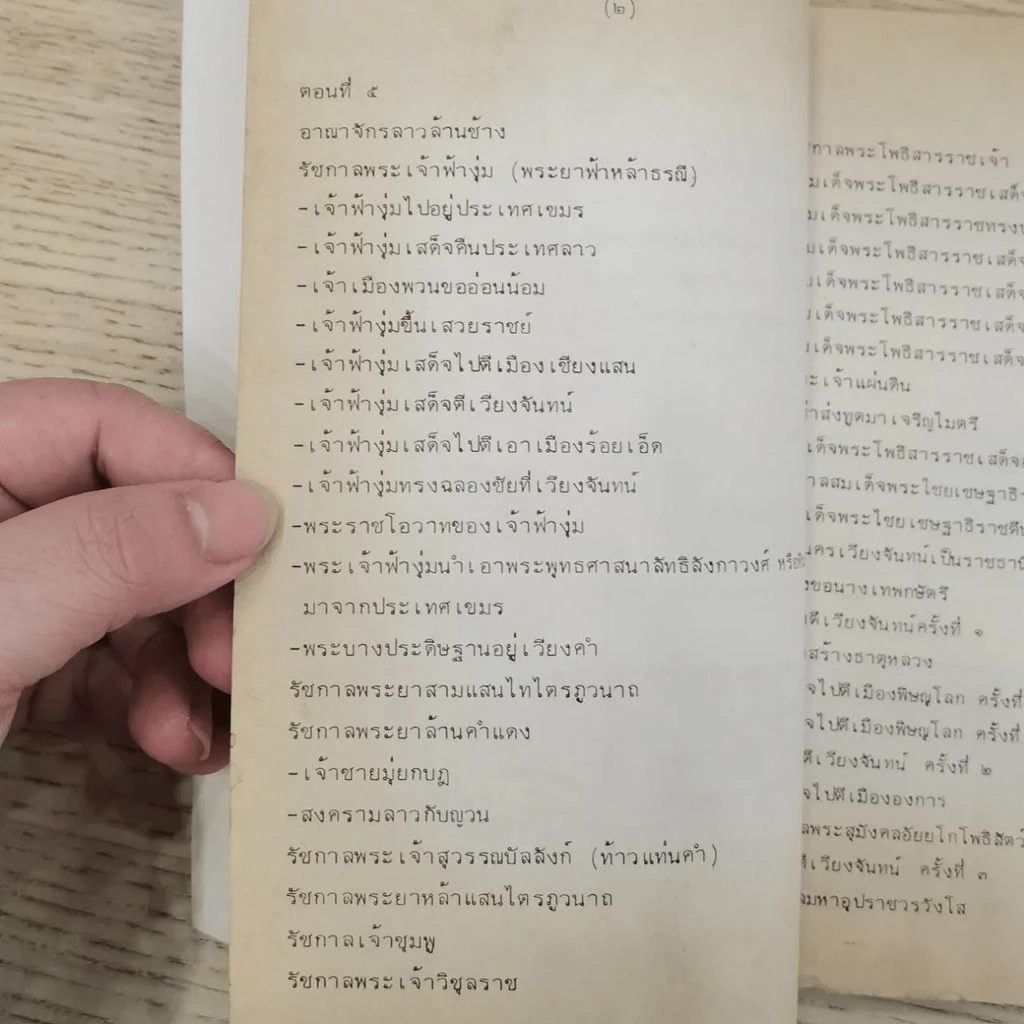 (๒)
ตอนที่ ๕
อาณาจักรลาวล้านช้าง
รัชกาลพระเจ้าฟ้างุ่ม (พระยาฟ้าหล้าธรณี)
-เจ้าฟ้างุ่มไปอยู่ประเทศเขมร
-เจ้าฟ้างุ่มเสด็จคืนประเทศลาว
-เจ้าเมืองพวนขออ่อนน้อม
-เจ้าฟ้างุ่มขึ้นเสวยราชย์
-เจ้าฟ้างุ่มเสด็จไปตีเมืองเชียงแสน
-เจ้าฟ้างุ่มเสด็จตีเวียงจันทน์
-เจ้าฟ้างุ่มเสด็จไปตีเอาเมืองร้อยเอ็ด
-เจ้าฟ้างุ่มทรงฉลองชัยที่เวียงจันทน์
-พระราชโอวาทของเจ้าฟ้างุ่ม
-พระเจ้าฟ้างุ่มนำเอาพระพุทธศาสนาลัทธิลังกาวงศ์
มาจากประเทศเขมร
-พระบางประดิษฐานอยู่เวียงคำ
รัชกาลพระยาสามแสนไทไตรภูวนาถ
รัชกาลพระยาล้านคำแดง
-เจ้าชายมุ่ยกบฎ
-สงครามลาวกับญวน
รัชกาลพระเจ้าสุวรรณบัลลังก์ (ท้าวแท่นคำ)
รัชกาลพระยาหล้าแสนไตรภูวนาถ
รัชกาลเจ้าชุมพู
รัชกาลพระเจ้าวิชุลราช
กาลพระโพธิสารราชเจ้า
เด็จพระโพธิสารราชเสด็จ
เด็จพระโพธิสารราชทรง
เด็จพระโพธิสารราชเสด็จ
เด็จพระโพธิสารราชเสด็จ
เด็จพระโพธิสารราชเสด็จ
เด็จพระโพธิสารราชเสด็จ
ะเจ้าแผ่นดิน
ส่งทูตมาเจริญไมตรี
เด็จพระโพธิสารราชเสด็จ
าลสมเด็จพระไชยเชษฐาธิ
เด็จพระไชยเชษฐาธิราช
นครเวียงจันทน์เป็นราชธานี
ขอนางเทพกษัตรี
ตีเวียงจันทน์ครั้งที่ ๑
สร้างธาตุหลวง
จไปตีเมืองพิษณุโลก ครั้งที่
จไปตีเมืองพิษณุโลก ครั้งที่
ตีเวียงจันทน์ ครั้งที่ ๒
จไปตีเมืององการ
ลพระสุมังคลอัยยโกโพธิสัตว์
ตีเวียงจันทน์ ครั้งที่ ๓
ลมหาอุปราชวรวังโส